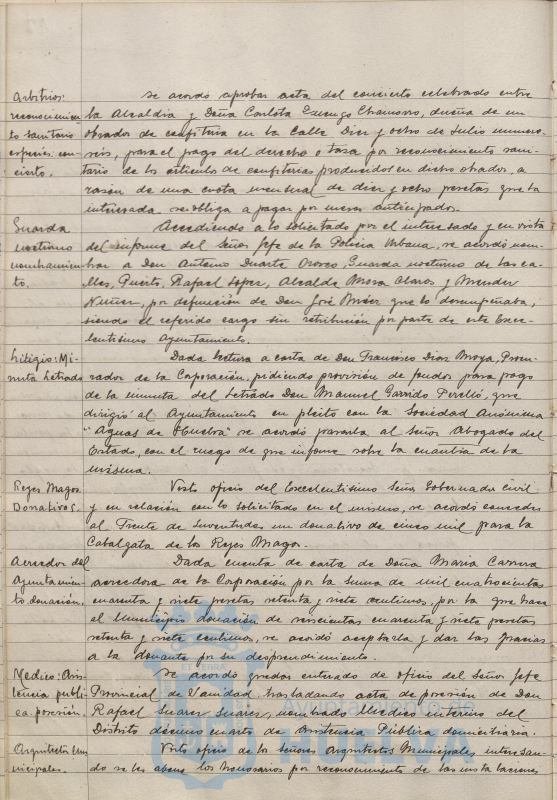 Arbitrios:
reconocimien
to sanitario
especies con-
cierto.
Se acordó aprobar acta del concierto celebrado entre
la Alcaldía y Doña Carlota Chamorro, dueña de un
obrador de confitura en la Calle Diez y ocho de Julio numero
seis, para el pago del derecho o tasa por reconocimiento sani-
tario de los articulos de confiterias producidos en dicho obrador, a
razón de una cuota mensual de diez y ocho pesetas que la
interesada se obliga a pagar por meses anticipados.
Guarda
nocturno
nombramien
to.
Accediendo a lo solicitado por el interesado y en vista
del informe del Señor Jefe de la Policia Urbana, se acordó nom-
brar a Don Antonio Duarte Orosco, Guarda nocturno de las ca-
lles, Puerto, Rafael Lopez, Alcalde Mora Claros y Mendez
Nuñez, por defunción de Don José que lo desempeñaba,
siendo el referido cargo sin retribución por parte de este Exce-
lentisimo Ayuntamiento.
Litigio: Mi-
nuta Letrado
Dada lectura a carta de Don Francisco Diaz Moya, Procu-
rador de la Corporación, pidiendo provisión de fondos para pago
de la minuta del Letrado Don Manuel Garrido Perelló, que
dirigió al Ayuntamiento en pleito con la Sociedad Anónima
"Aguas de Huelva" se acordó pasarla al Señor Abogado del
Estado, con el ruego de que informe sobre la cuantia de la
misma.
Reyes Magos
Donativos.
Visto oficio del Excelentisimo Señor Gobernador civil
y en relación con lo solicitado en el mismo, se acordó conceder
al Frente de Juventudes un donativo de cinco mil para la
Cabalgata de los Reyes Magos.
Acreedor del
Ayuntamien
to donación.
Dada cuenta de carta de Doña Maria Carrera
acreedora de la Corporación por la suma de mil cuatrocientas
cuarenta y siete pesetas setenta y siete centimos, por la que hace
al Municipio donación de seiscientas cuarenta y siete pesetas
setenta y siete centimos, se acordó aceptarla y dar las gracias
a la donante por su desprendimiento.
Medico: Asis-
tencia publi
ca posesión.
Se acordó quedar enterado de oficio del Señor Jefe
Provincial de Sanidad trasladando acta de posesión de Don
Rafael Suarez Suarez, nombrado Medico interino del
Distrito decimo cuarto de Asistencia Pública domiciliaria.
Arquitecto Mu
nicipales.
Visto oficio de los Señores Arquitectos Municipales, interesan-
do se les abone los honorarios por reconocimiento de las instalaciones
Ayuntamiento de
HUELVA